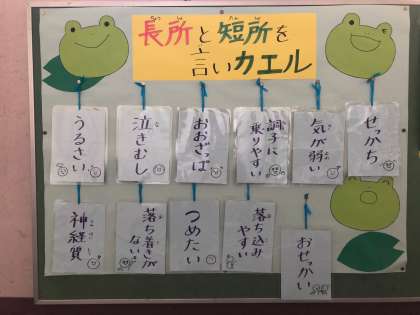 長所と短所を
言いカエル
せっかち
気が弱い
調子に
乗りやすい
おおざっぱ
泣きむし
うるさい
おせっかい
落ち込み
やすい
つめたい
落ち着きが
ない
神経質